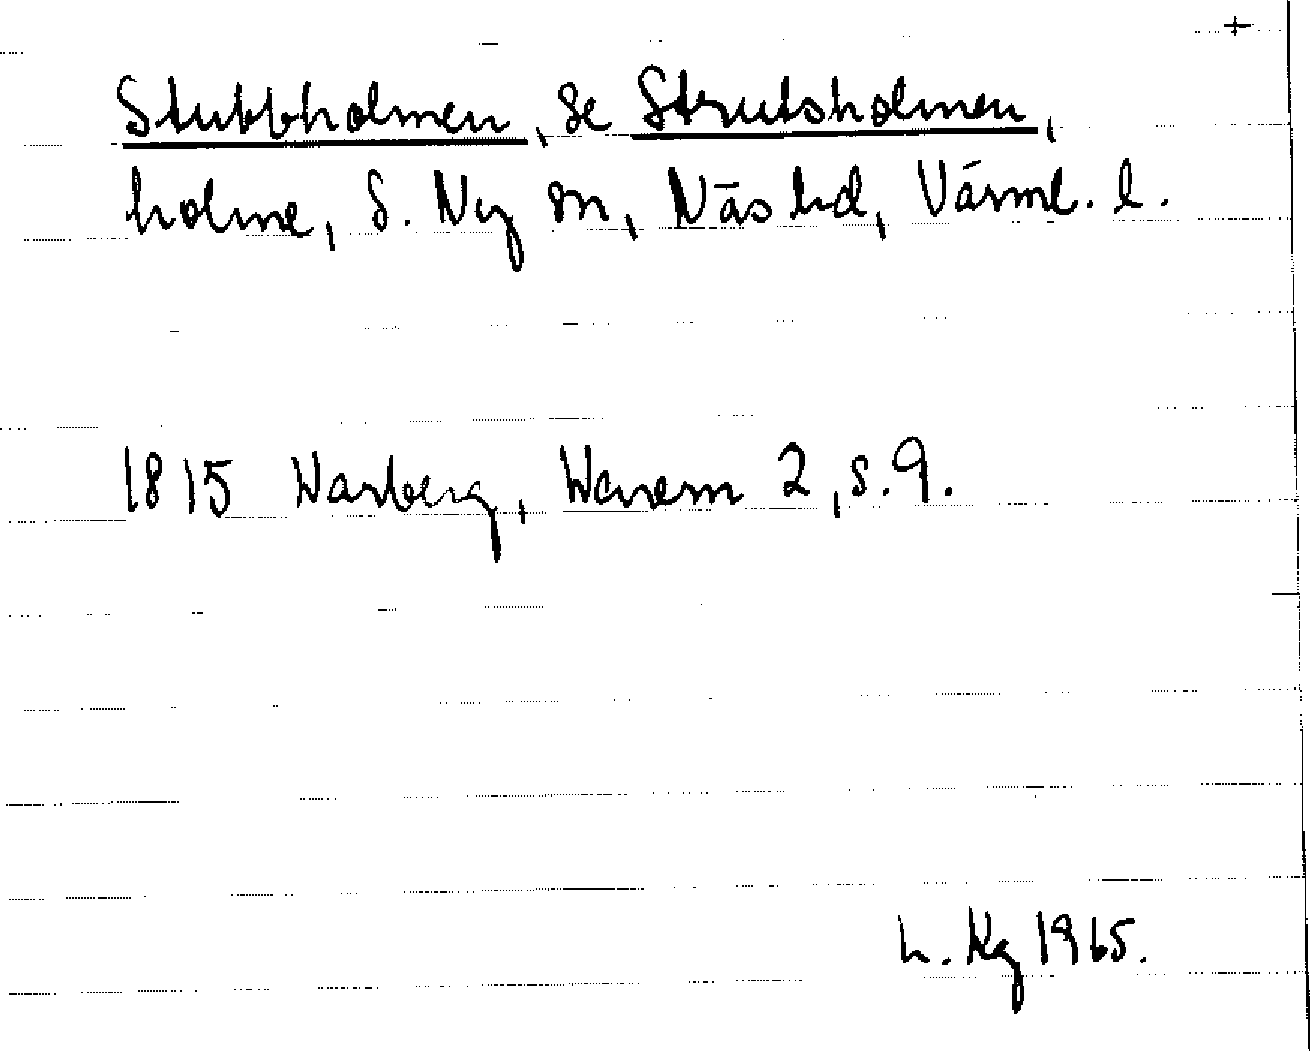 +
Stubbholmen, se Strutsholmen,
holme, S. Ny sn, Näs hd, Värml. l.
1815 Warberg, Wenern 2, s. 9.
L. Kg 1965.